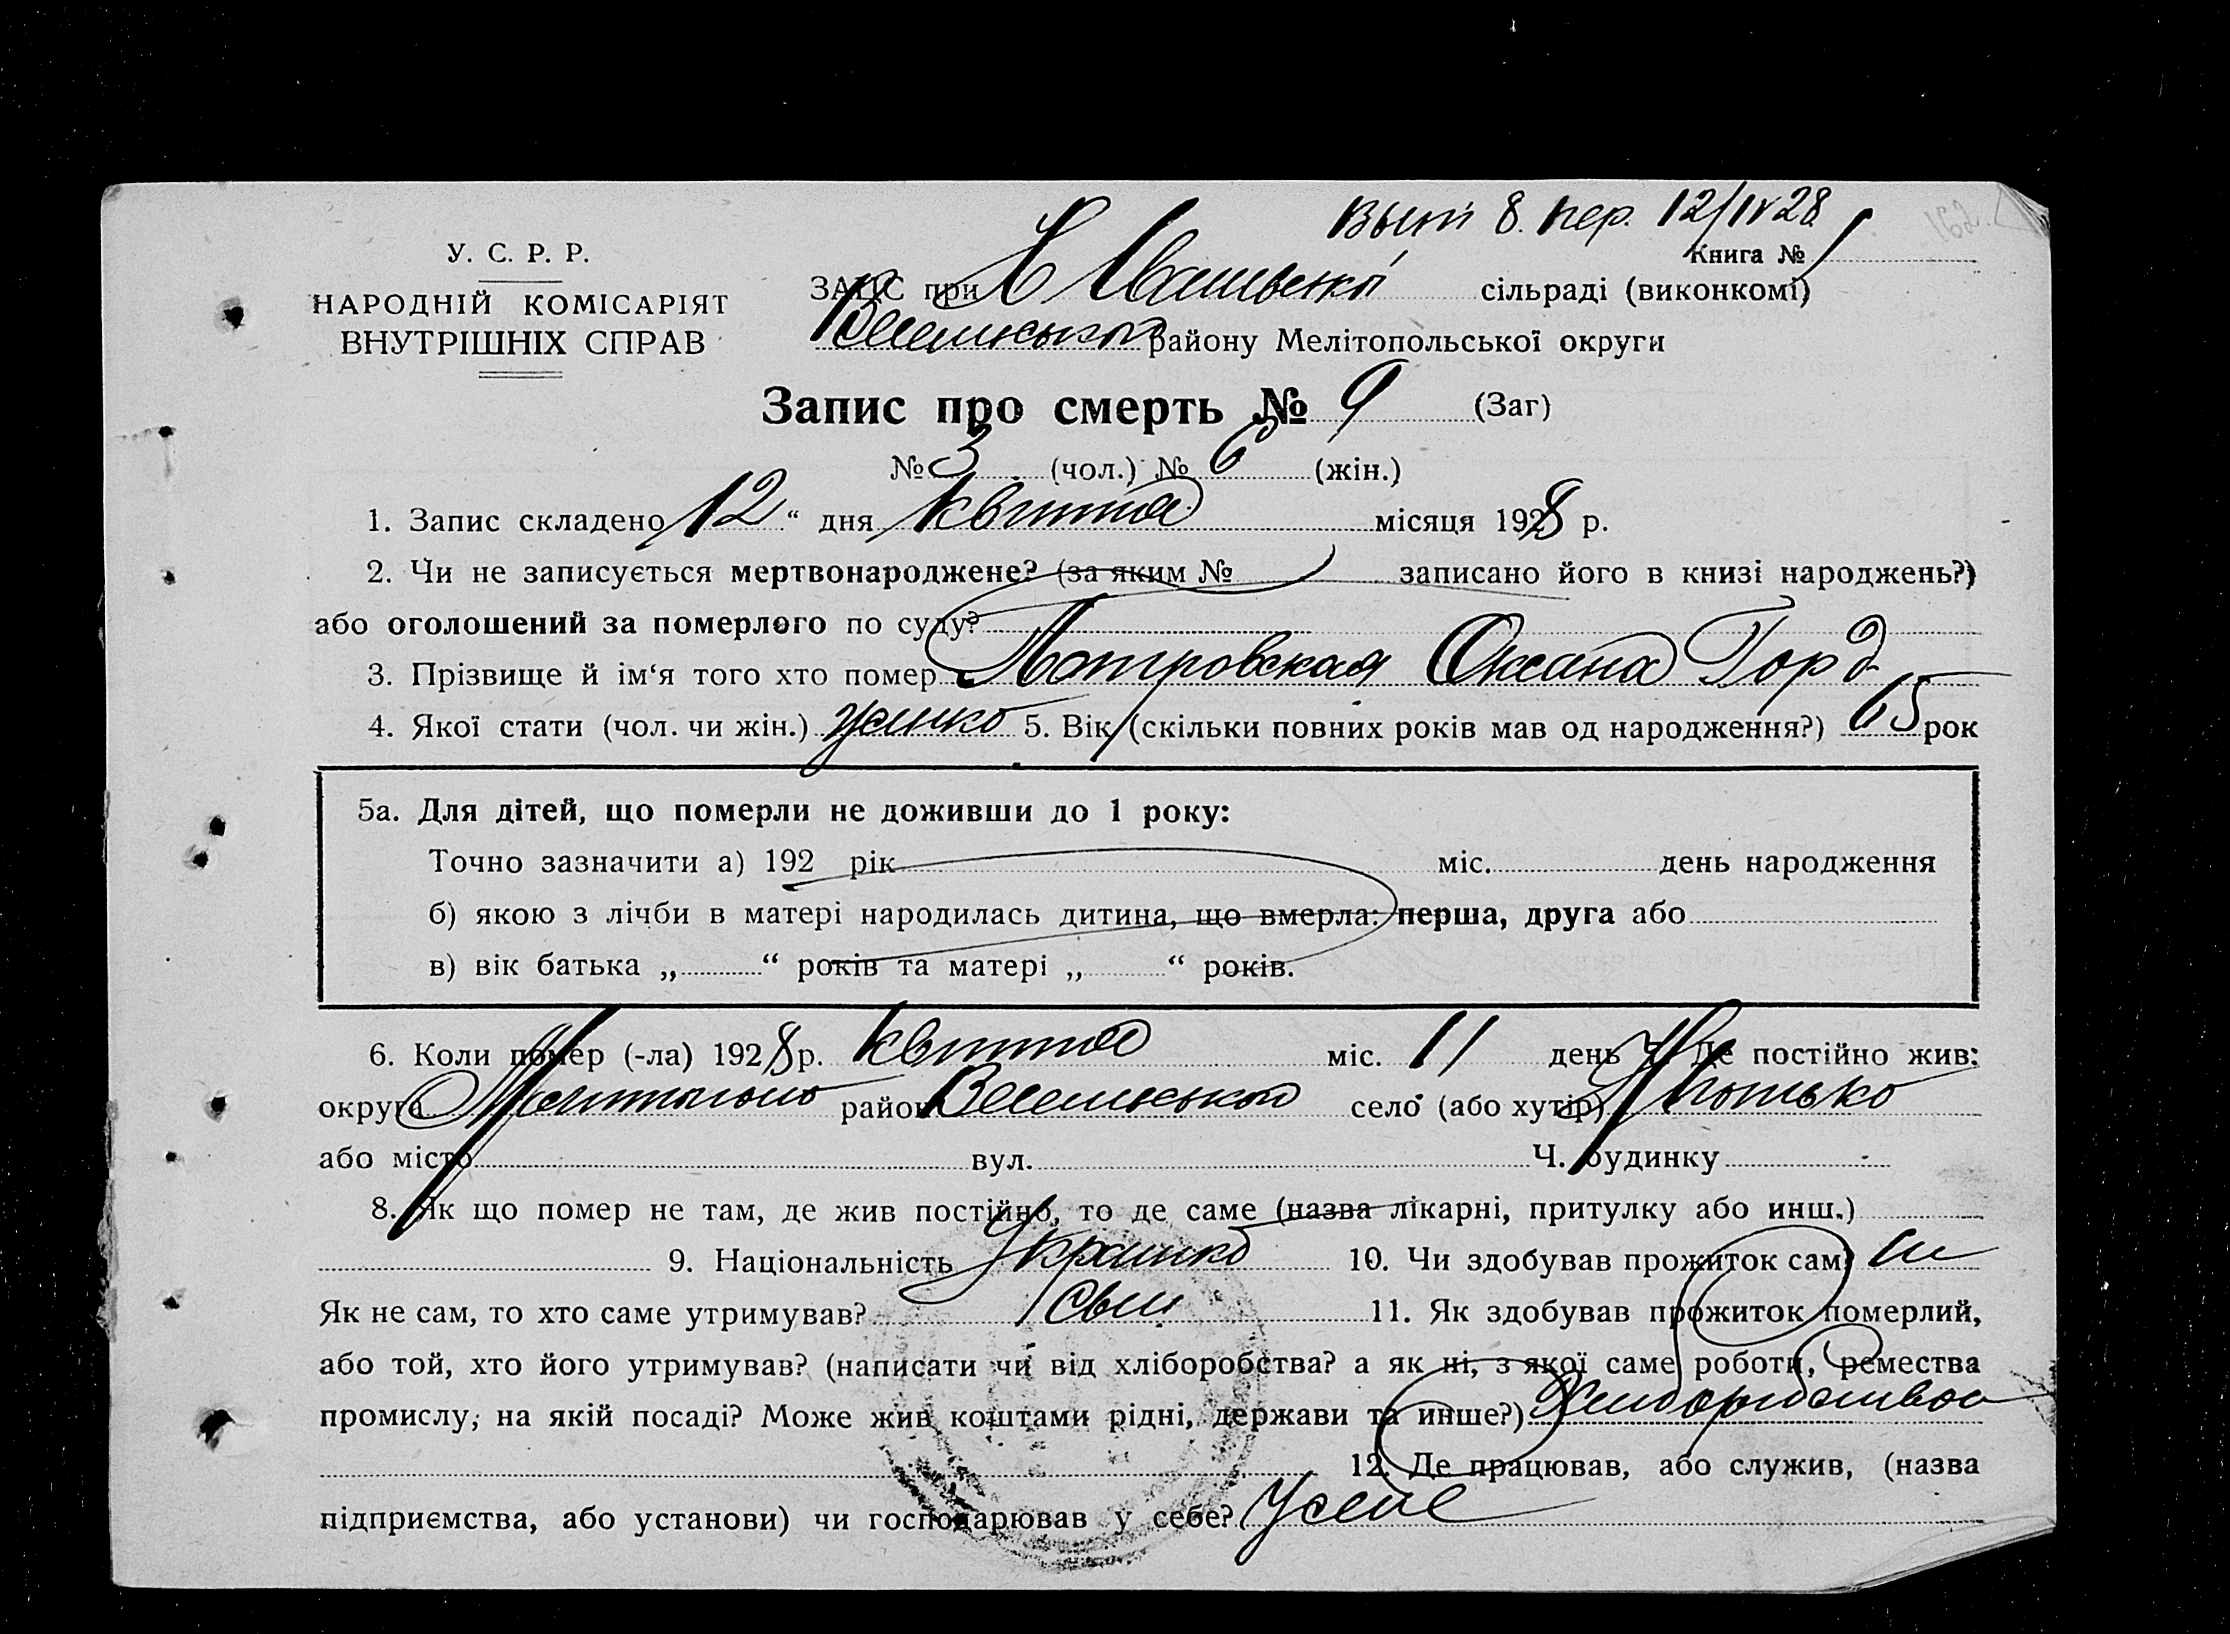 8. пер. 12/IV 28
У. С. Р. Р.
Книга № 1
НАРОДНІЙ КОМІСАРІЯТ
ВНУТРІШНІХ СПРАВ
ЗАГС при сільраді (виконкомі)
району Мелітопольської округи
Запис про смерть № 9 (Заг)
№ 3 (чол.) № 6 (жін.)
1. Запис складено 12 “ дня квітня місяця 1928 р.
2. Чи не записується мертвонароджене? (за яким № записано його в книзі народжень?)
або оголошений за померлого по суду?
3. Прізвище й ім‘я того хто помер Оксана
4. Якої стати (чол. чи жін.) жінко 5. Вік (скільки повних років мав од народження?) 65 рок
5а. Для дітей, що померли не доживши до 1 року:
Точно зазначити а) 192 рік міс. день народження
б) якою з лічби в матері народилась дитина, що вмерла: перша, друга або
в) вік батька „ “ років та матері „ “ років.
6. Коли помер (-ла) 1928 р. квітня міс. 11 день 7. Де постійно жив:
округа район село (або хутір)
або місто вул. Ч. будинку
8. Як що помер не там, де жив постійно, то де саме (назва лікарні, притулку або инш.)
9. Національність Українко 10. Чи здобував прожиток сам?
Як не сам, то хто саме утримував? 11. Як здобував прожиток померлий,
або той, хто його утримував? (написати чи від хліборобства? а як ні, з якої саме роботи, ремества
промислу, на якій посаді? Може жив коштами рідні, держави та инше?)
12. Де працював, або служив, (назва
підприємства, або установи) чи господарював у себе? У себе